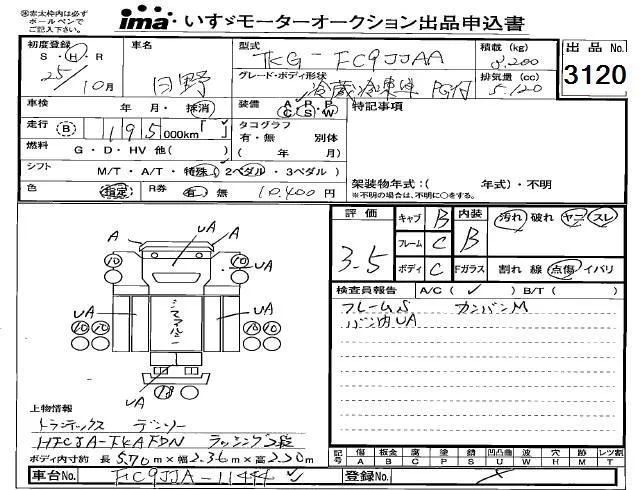 ※赤太枠内は必ず
ボールペンで
ご記入下さい。
ima いすゞモーターオークション出品申込書
初度登録 車名 型式 TKG-FC9JJAA 積載 (kg) 出品No.
S・H・R 25/10月 日野 グレード・ボディ形状 冷蔵冷凍車 PG付 排気量 (cc) 3120
車検 年 月・抹消 装備 AC PS PW 特記事項
走行 B 195 000km「 」 タコグラフ
有・無 別体
燃料 G・D・HV 他( ) ( 年 月)
シフト M/T・A/T・特殊(2ペダル・3ペダル) 架装物年式:( 年式)・不明
※不明の場合は、不明に○をする。
色 指定 R券 有 無 10,400円
評価 キャブ B 内装 汚れ 破れ ヤニ スレ
3.5 フレーム C B
ボディ C Fガラス 割れ 線 点傷 イバリ
検査員報告 A/C( ✓ ) B/T( )
フレームS カンバンM
バン内UA
A UA A
10 10 UA
UA UA
10 10 10 10
UA
上物情報
トランテックス デンソー
ラッシング2段
ボディ内寸約 長 5.70m×幅 2.36m×高 2.30m
車台No. FC9JJA-11444
登録No.
記号 傷 板金 腐 塗 錆 凹凸曲 波 穴 跡 レツ割
A B C P S U W H M T